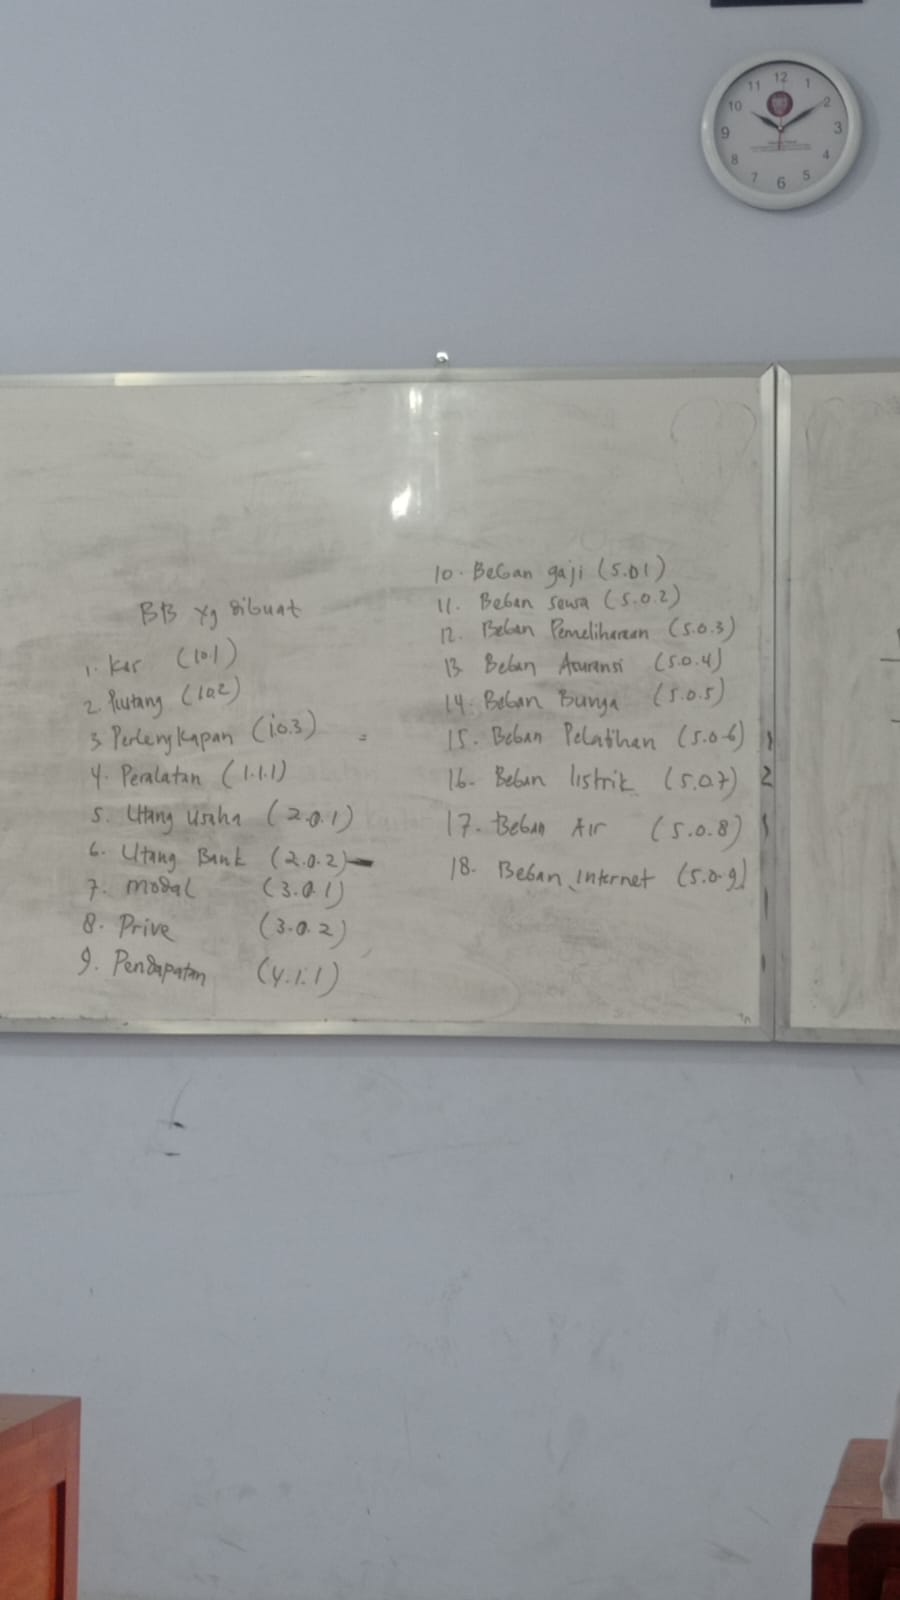 BB yg dibuat
1. Kas (101)
2. Piutang (102)
3. Perlengkapan (1.0.3)
4. Peralatan (1.1.1)
5. Utang Usaha (2.0.1)
6. Utang Bank (2.0.2)
7. Modal (3.0.1)
8. Prive (3.0.2)
9. Pendapatan (4.1.1)
10. Beban gaji (5.01)
11. Beban sewa (5.0.2)
12. Beban Pemeliharaan (5.0.3)
13 Beban Asuransi (5.0.4)
14. Beban Bunga (5.0.5)
15. Beban Pelatihan (5.0.6)
16. Beban listrik (5.0.7)
17. Beban Air (5.0.8)
18. Beban Internet (5.0.9)
12
1
2
3
4
5
6
7
8
9
10
11